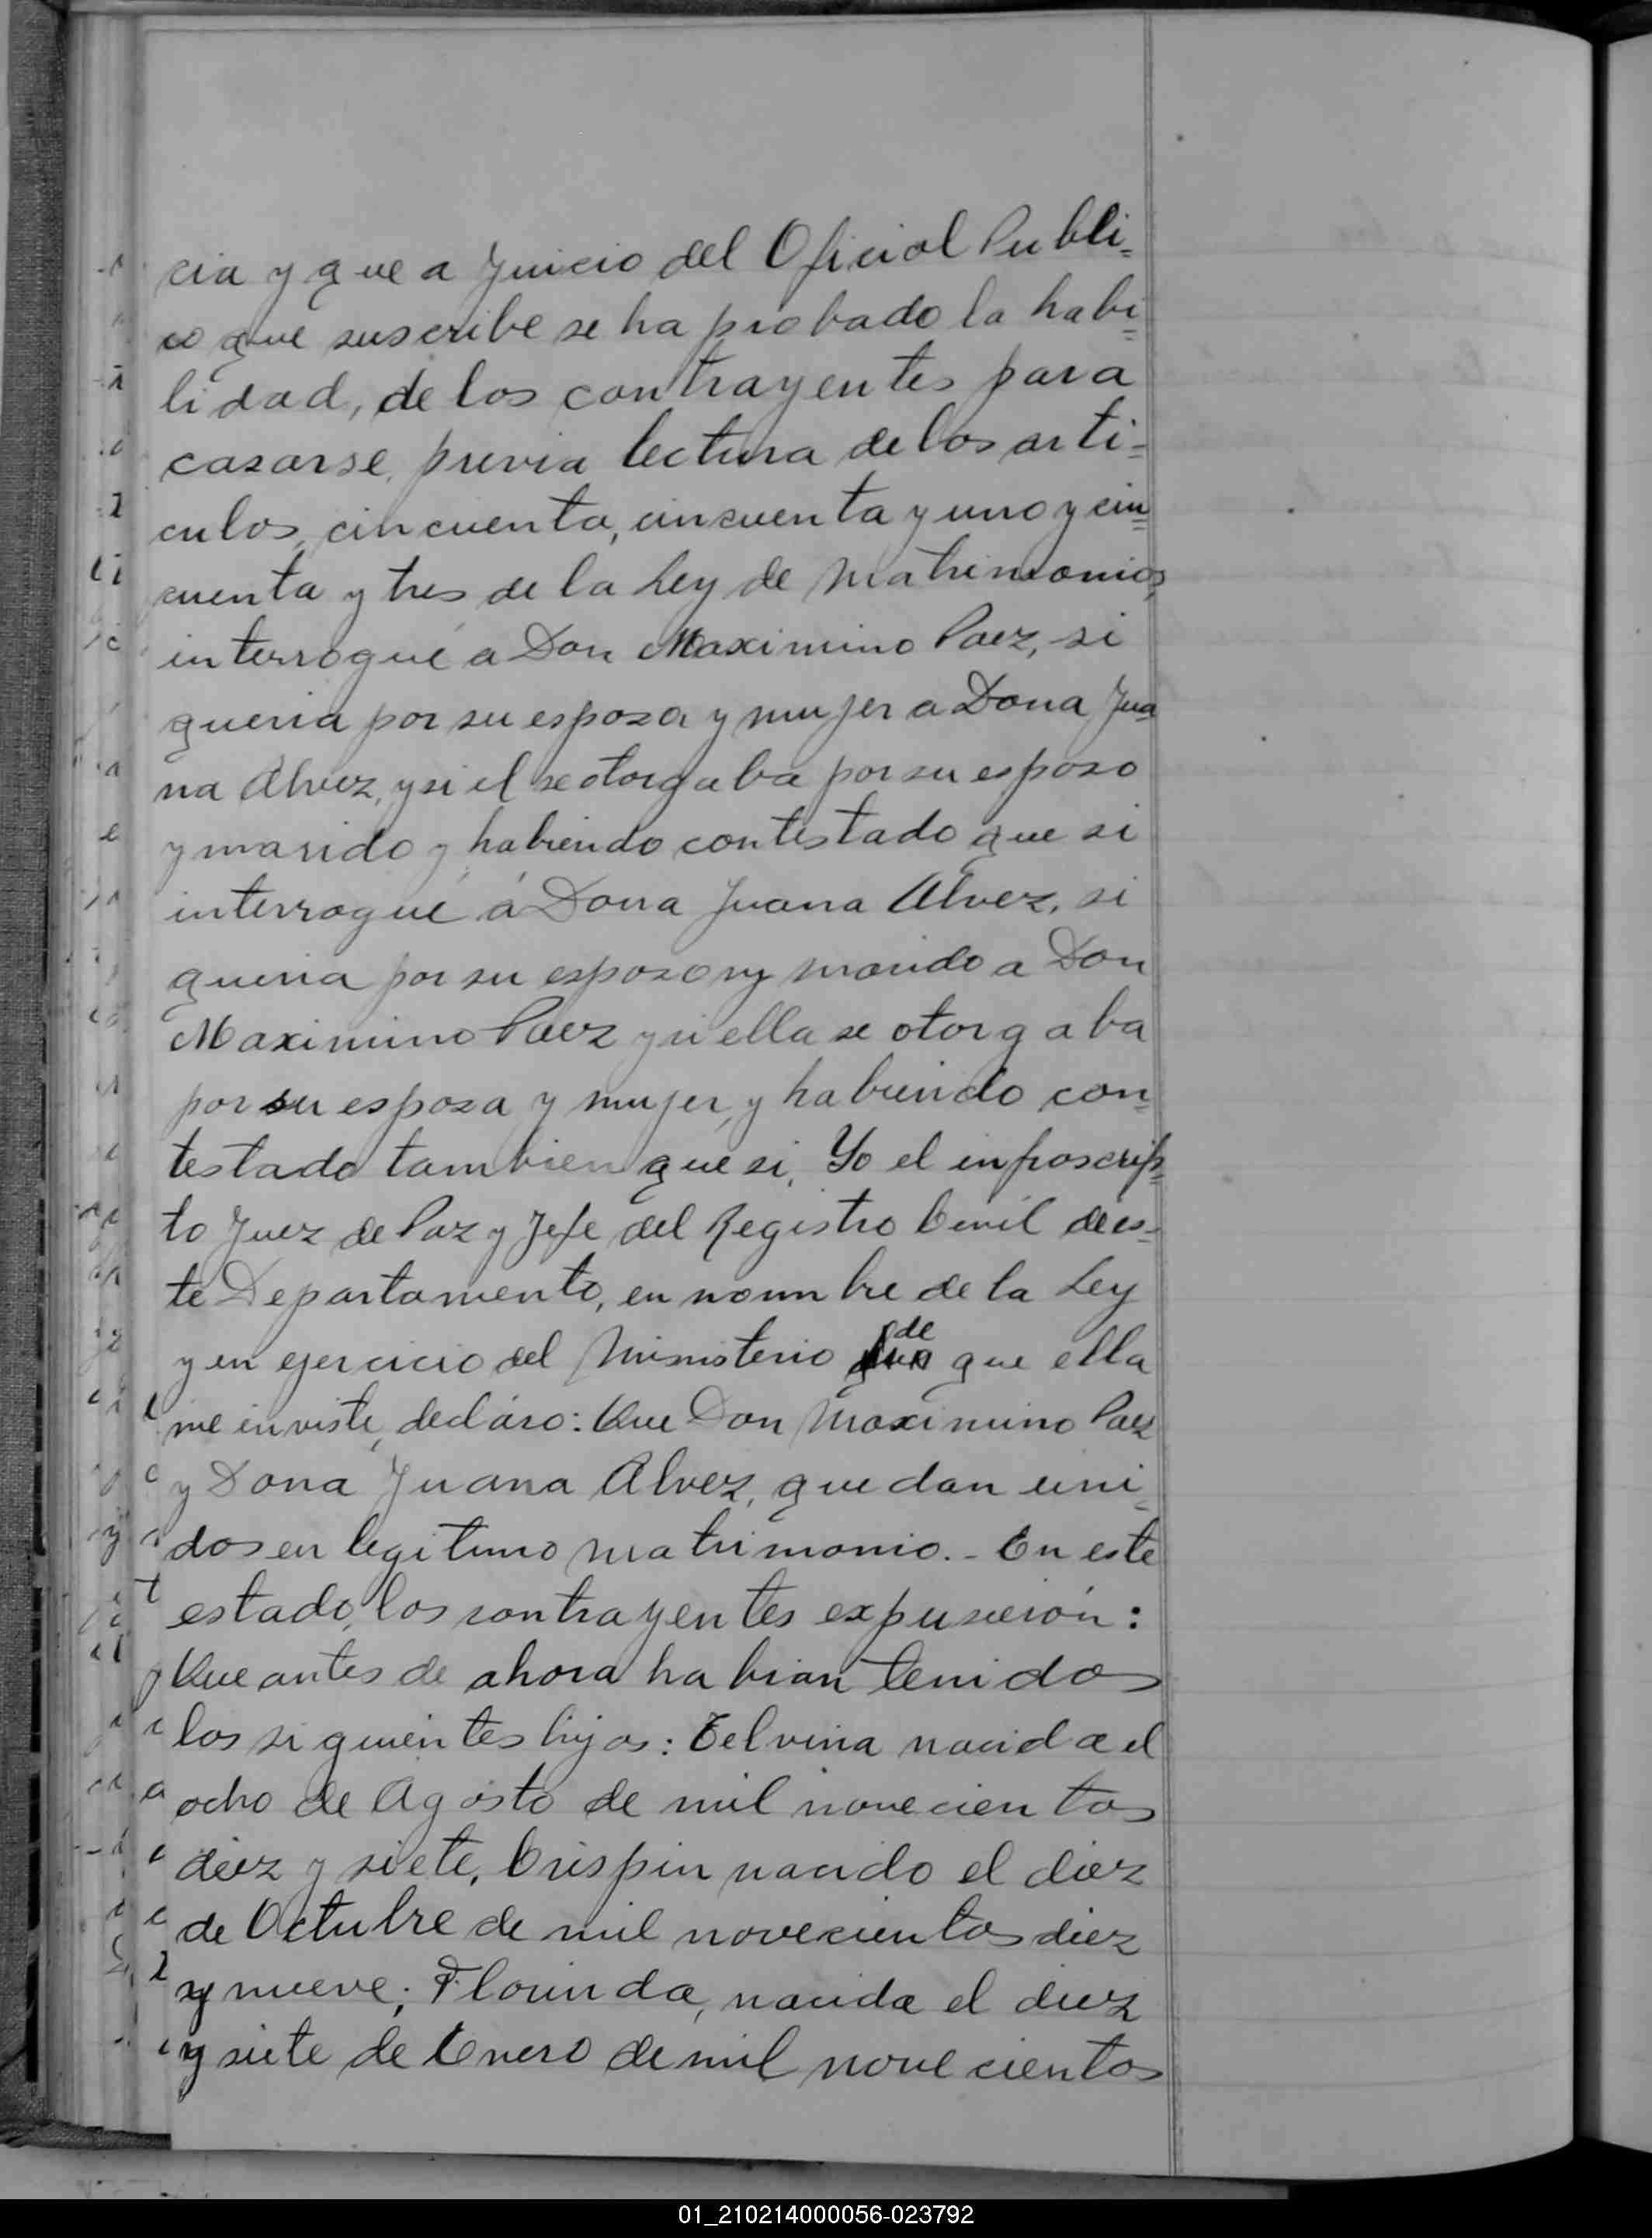 cia y que a Juicio del Oficial Publi=
co que suscribe se ha probado la habi=
lidad, de los contrayentes para
casarse, previa lectura de los arti=
culos, cincuenta, cincuenta y uno y cin=
cuenta y tres de la Ley de Matrimonios,
interrogué a Don Maximino Paez, si
queria por su esposa y mujer a Dona Jua
na Alvez, y si el se otorgaba por su esposo
y marido y habiendo contestado que si
interrogué á Dona Juana Alvez, si
queria por su esposo y marido a Don
Maximino Paez y si ella se otorgaba
por su esposa y mujer, y habiendo con=
testado tambien que si, Yo el infrascrip=
to Juez de Paz y Jefe del Registro Civil de es=
te Departamento, en nombre de la Ley
y en ejercicio del Ministerio de que ella
me inviste, decláro: Que Don Maximino Paez
y Dona Juana Alvez, quedan uni=
dos en legitimo matrimonio.- En este
estado, los contrayentes expusierón:
Que antes de ahora habian tenidos
los siguientes hijos: Telvina nacida el
ocho de Agosto de mil novecientos
diez y siete, Crispin nacido el diez
de Octubre de mil novecientos diez
y nueve; Florinda, nacida el diez
y siete de Enero de mil novecientos
01_210214000056-023792